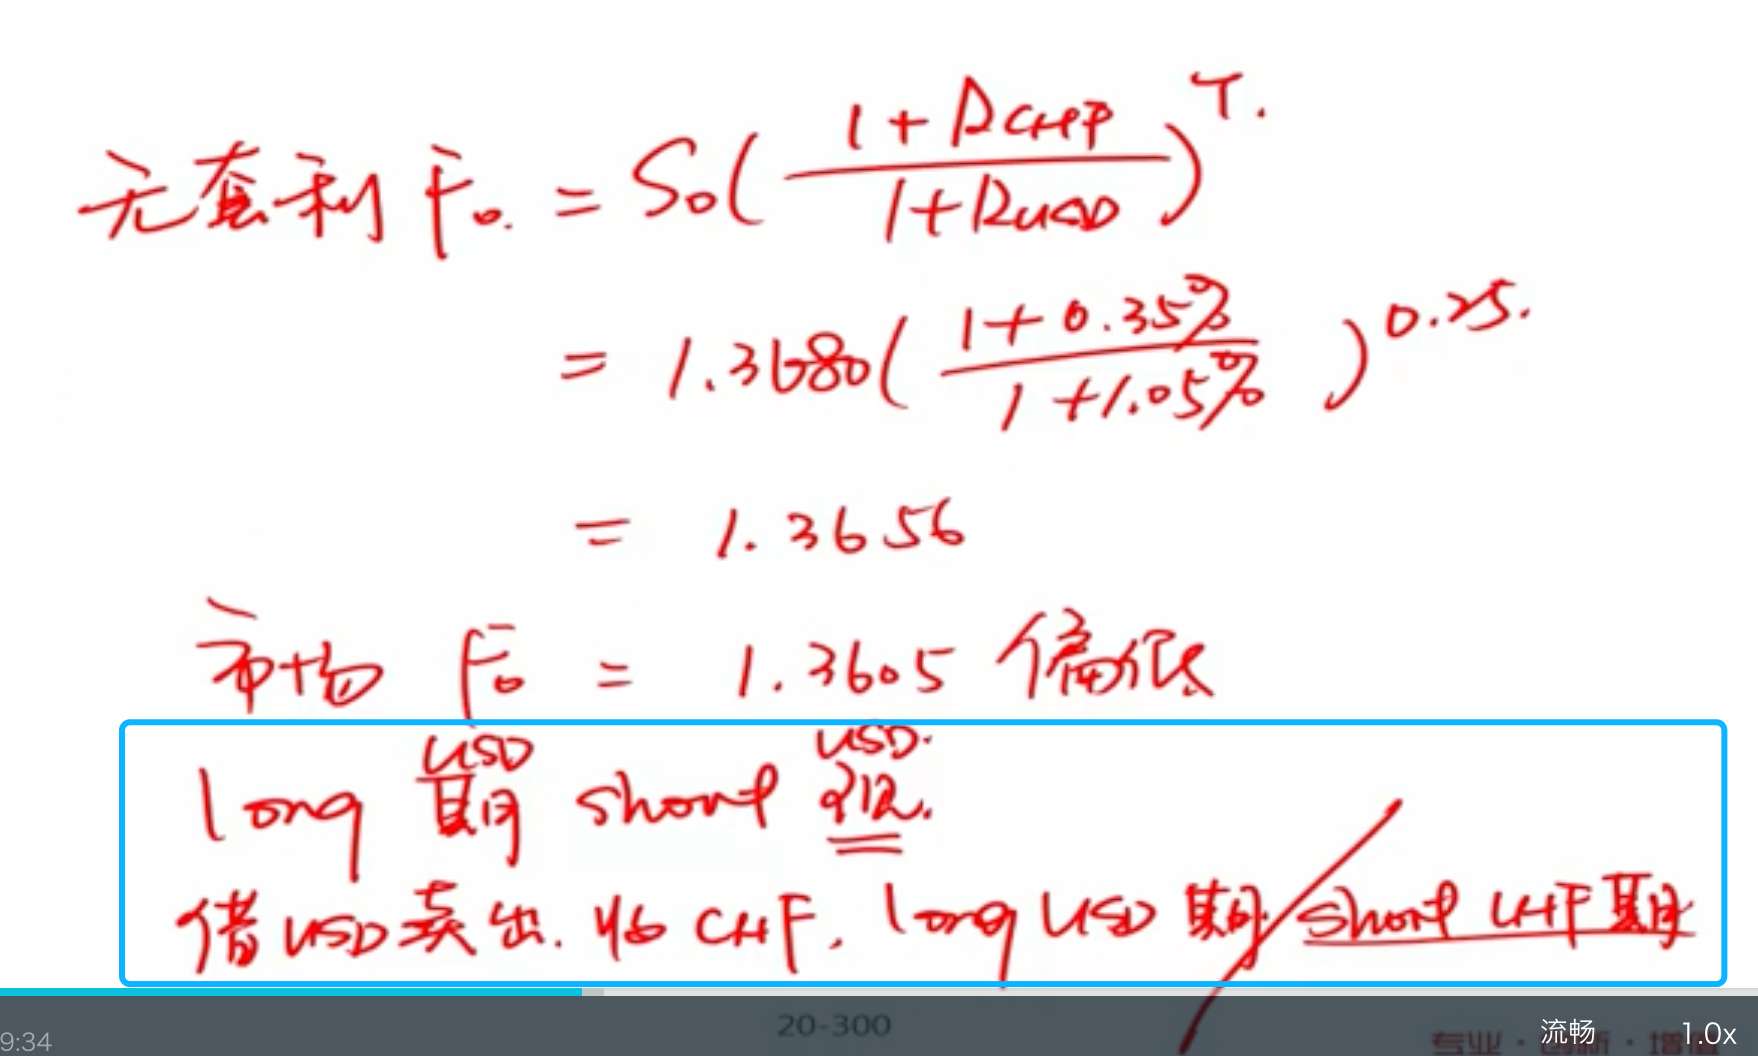 无套利 F₀ = S₀(1+RCHF / 1+RUSD)^T.
= 1.3680(1+0.35% / 1+1.05%)^0.25.
= 1.3656
市场 F₀ = 1.3605 偏低
long USD期 short USD.现.
借USD卖出. 收CHF, long USD期/short CHF期
20-300
9:34
流畅
1.0x
专业·创新·增值